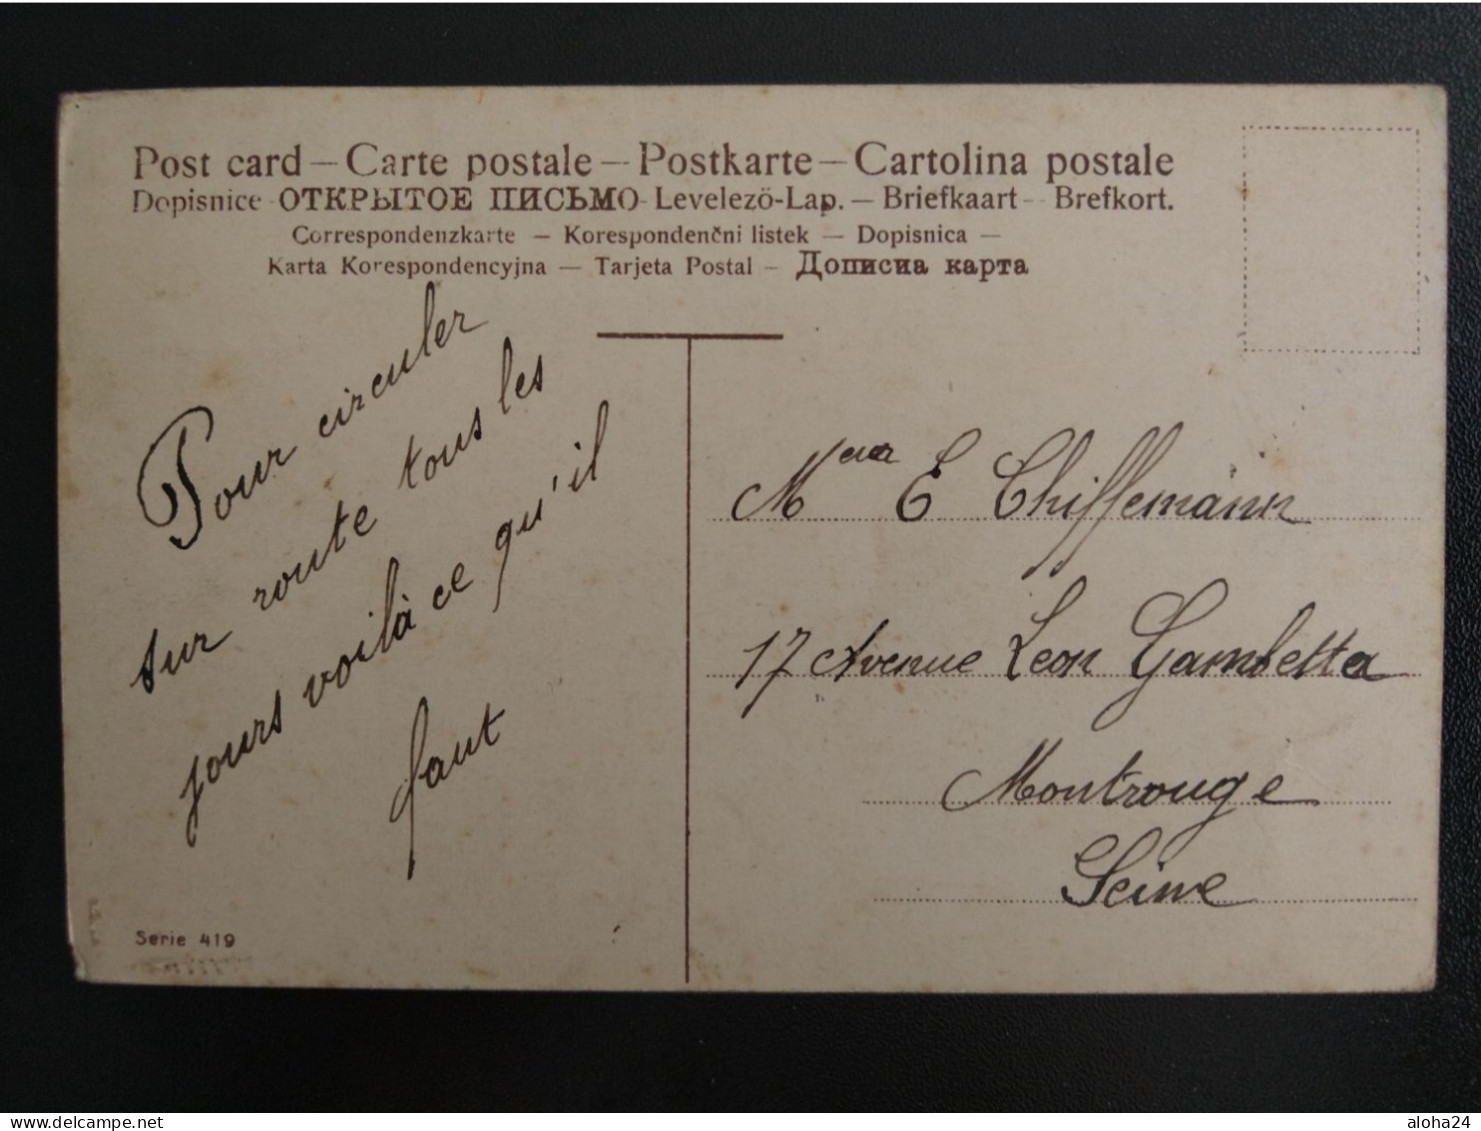 Post card – Carte postale – Postkarte – Cartolina postale
Dopisnice – ОТКРЫТОЕ ПИСЬМО – Levelezö-Lap. – Briefkaart – Brefkort.
Correspondenzkarte – Korespondenčni listek – Dopisnica –
Karta Korespondencyjna – Tarjeta Postal – Дописна карта
Pour circuler
sur route tous les
jours voilà ce qu'il
faut
Serie 419
E Chiffemann
17 Avenue Leon Gambetta
Montrouge
Seine
delcampe.net
aloha24